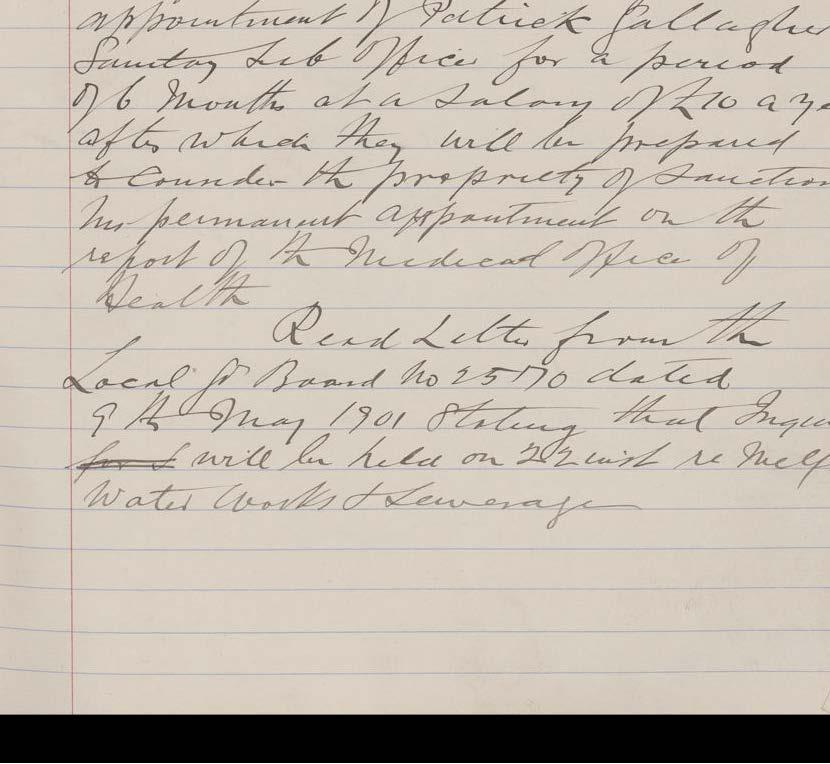 appointment of Patrick Gallagher
Sanitary Sub Officer for a period
of 6 Months at a Salary of £10 a ye
after which they will be prepared
to Consider the propriety of Sanction
his permanent appointment on the
report of the Medical Officer of
Health
Read Letter from the
Local Gt Board No 25170 dated
9th May 1901 Stating that Inqui
will be held on 22 inst re
Water Works & Sewerage